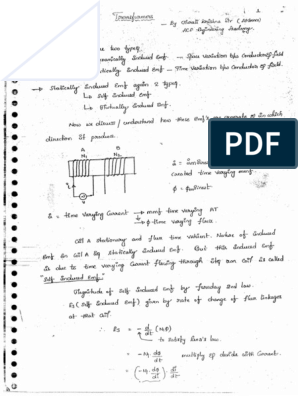 Transformers
- By
ACE Engineering Academy.
two types
Induced Emf - Space Variation b/w conductor & field
Statically Induced Emf - Time Variation b/w Conductor & field.
→ Statically Induced Emf again 2 types.
↳ Self Induced Emf
↳ Mutually Induced Emf.
Now we discuss / understand how these Emf's are generate & in which
direction It produce.
A B
N1 N2
PDF
varying mmf
φ =
i = time varying Current → mmf time varying AT
↳ φ - time varying flux.
Coil A Stationary and flux time Variant. Nature of Induced
Emf in Coil A is Statically Induced Emf. But this Induced Emf
is due to time varying Current flowing through its own Coil is called
"Self Induced Emf"
Magnitude of Self Induced Emf by faraday 2nd law.
(Self Induced Emf) given by rate of change of flux linkages
of that Coil.
∴ es = - d/dt (N1φ)
↳ to satisfy lenz's law.
= -N1 dφ/dt multiply & divide with Current.
= (-N1 dφ/di) di/dt